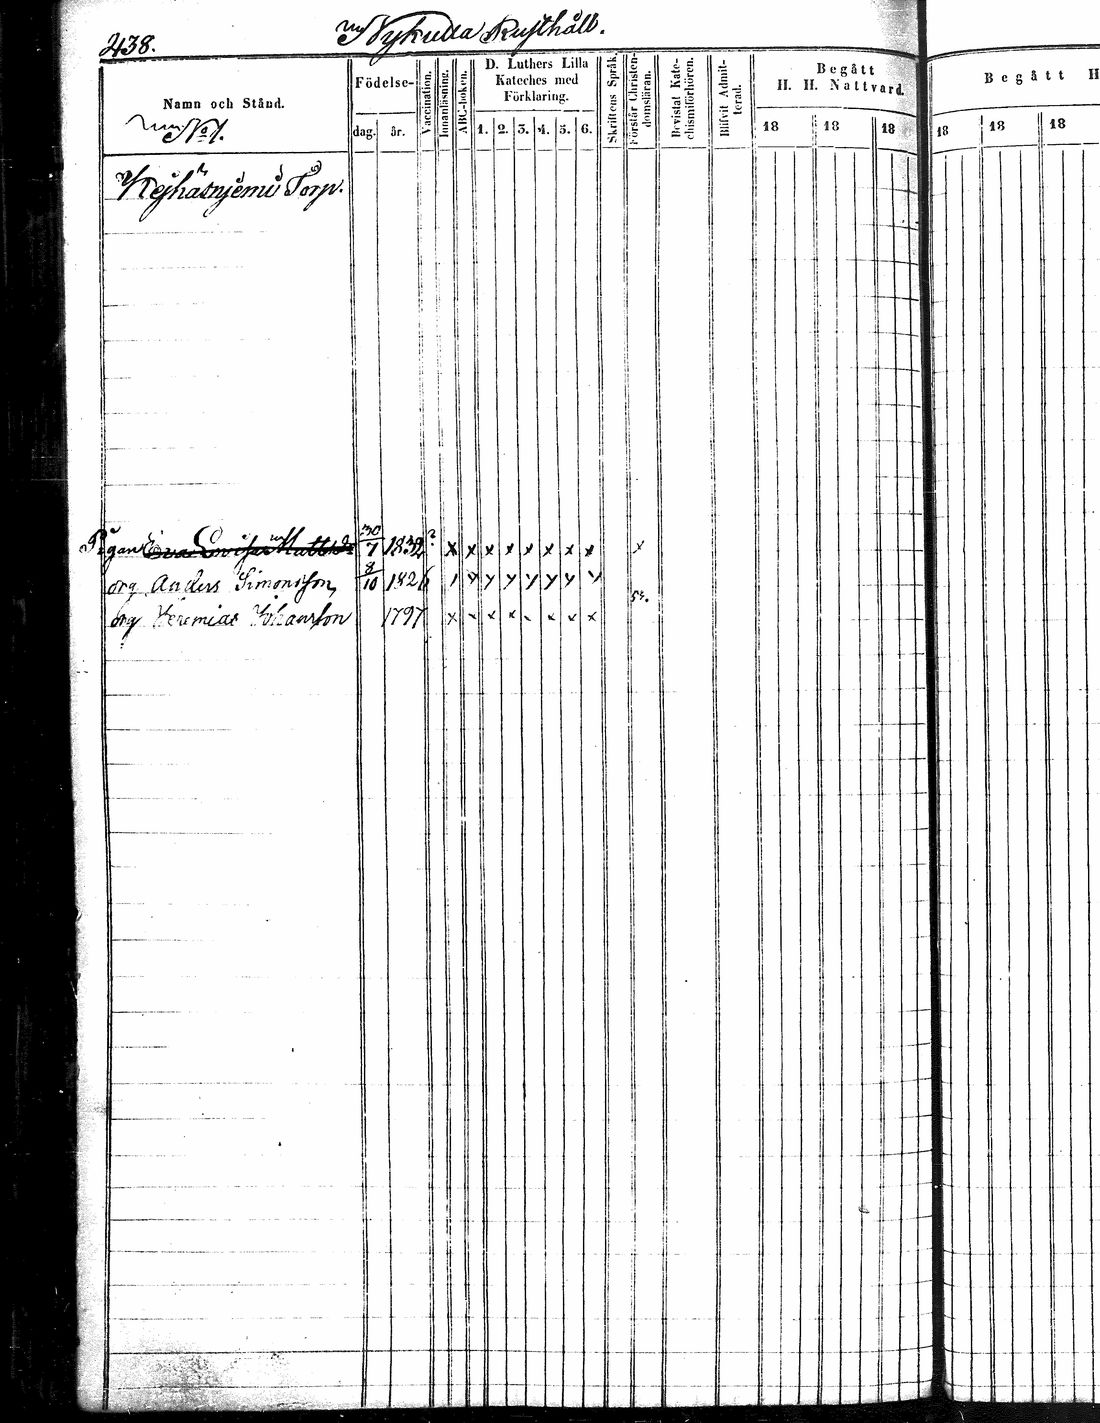 438. Nykulla Rusthåll.
Namn och Stånd.
No 1.
Födelse-
dag. år.
Vaccination.
Innanläsning.
ABC-boken.
D. Luthers Lilla
Kateches med
Förklaring.
1. 2. 3. 4. 5. 6.
Skriftens Språk.
Förstår Christen-
domsläran.
Bevistat Kate-
chismiförhören.
Blifvit Admit-
terad.
Begått
H. H. Nattvard.
18 18 18
Begått H
18 18 18
Torp.
Pigan Eva Lovisa 30/7 1832 ? x x x x x x x x x
Anders Simonsson 8/10 1826
54.
Jeremias Johansson 1797 x